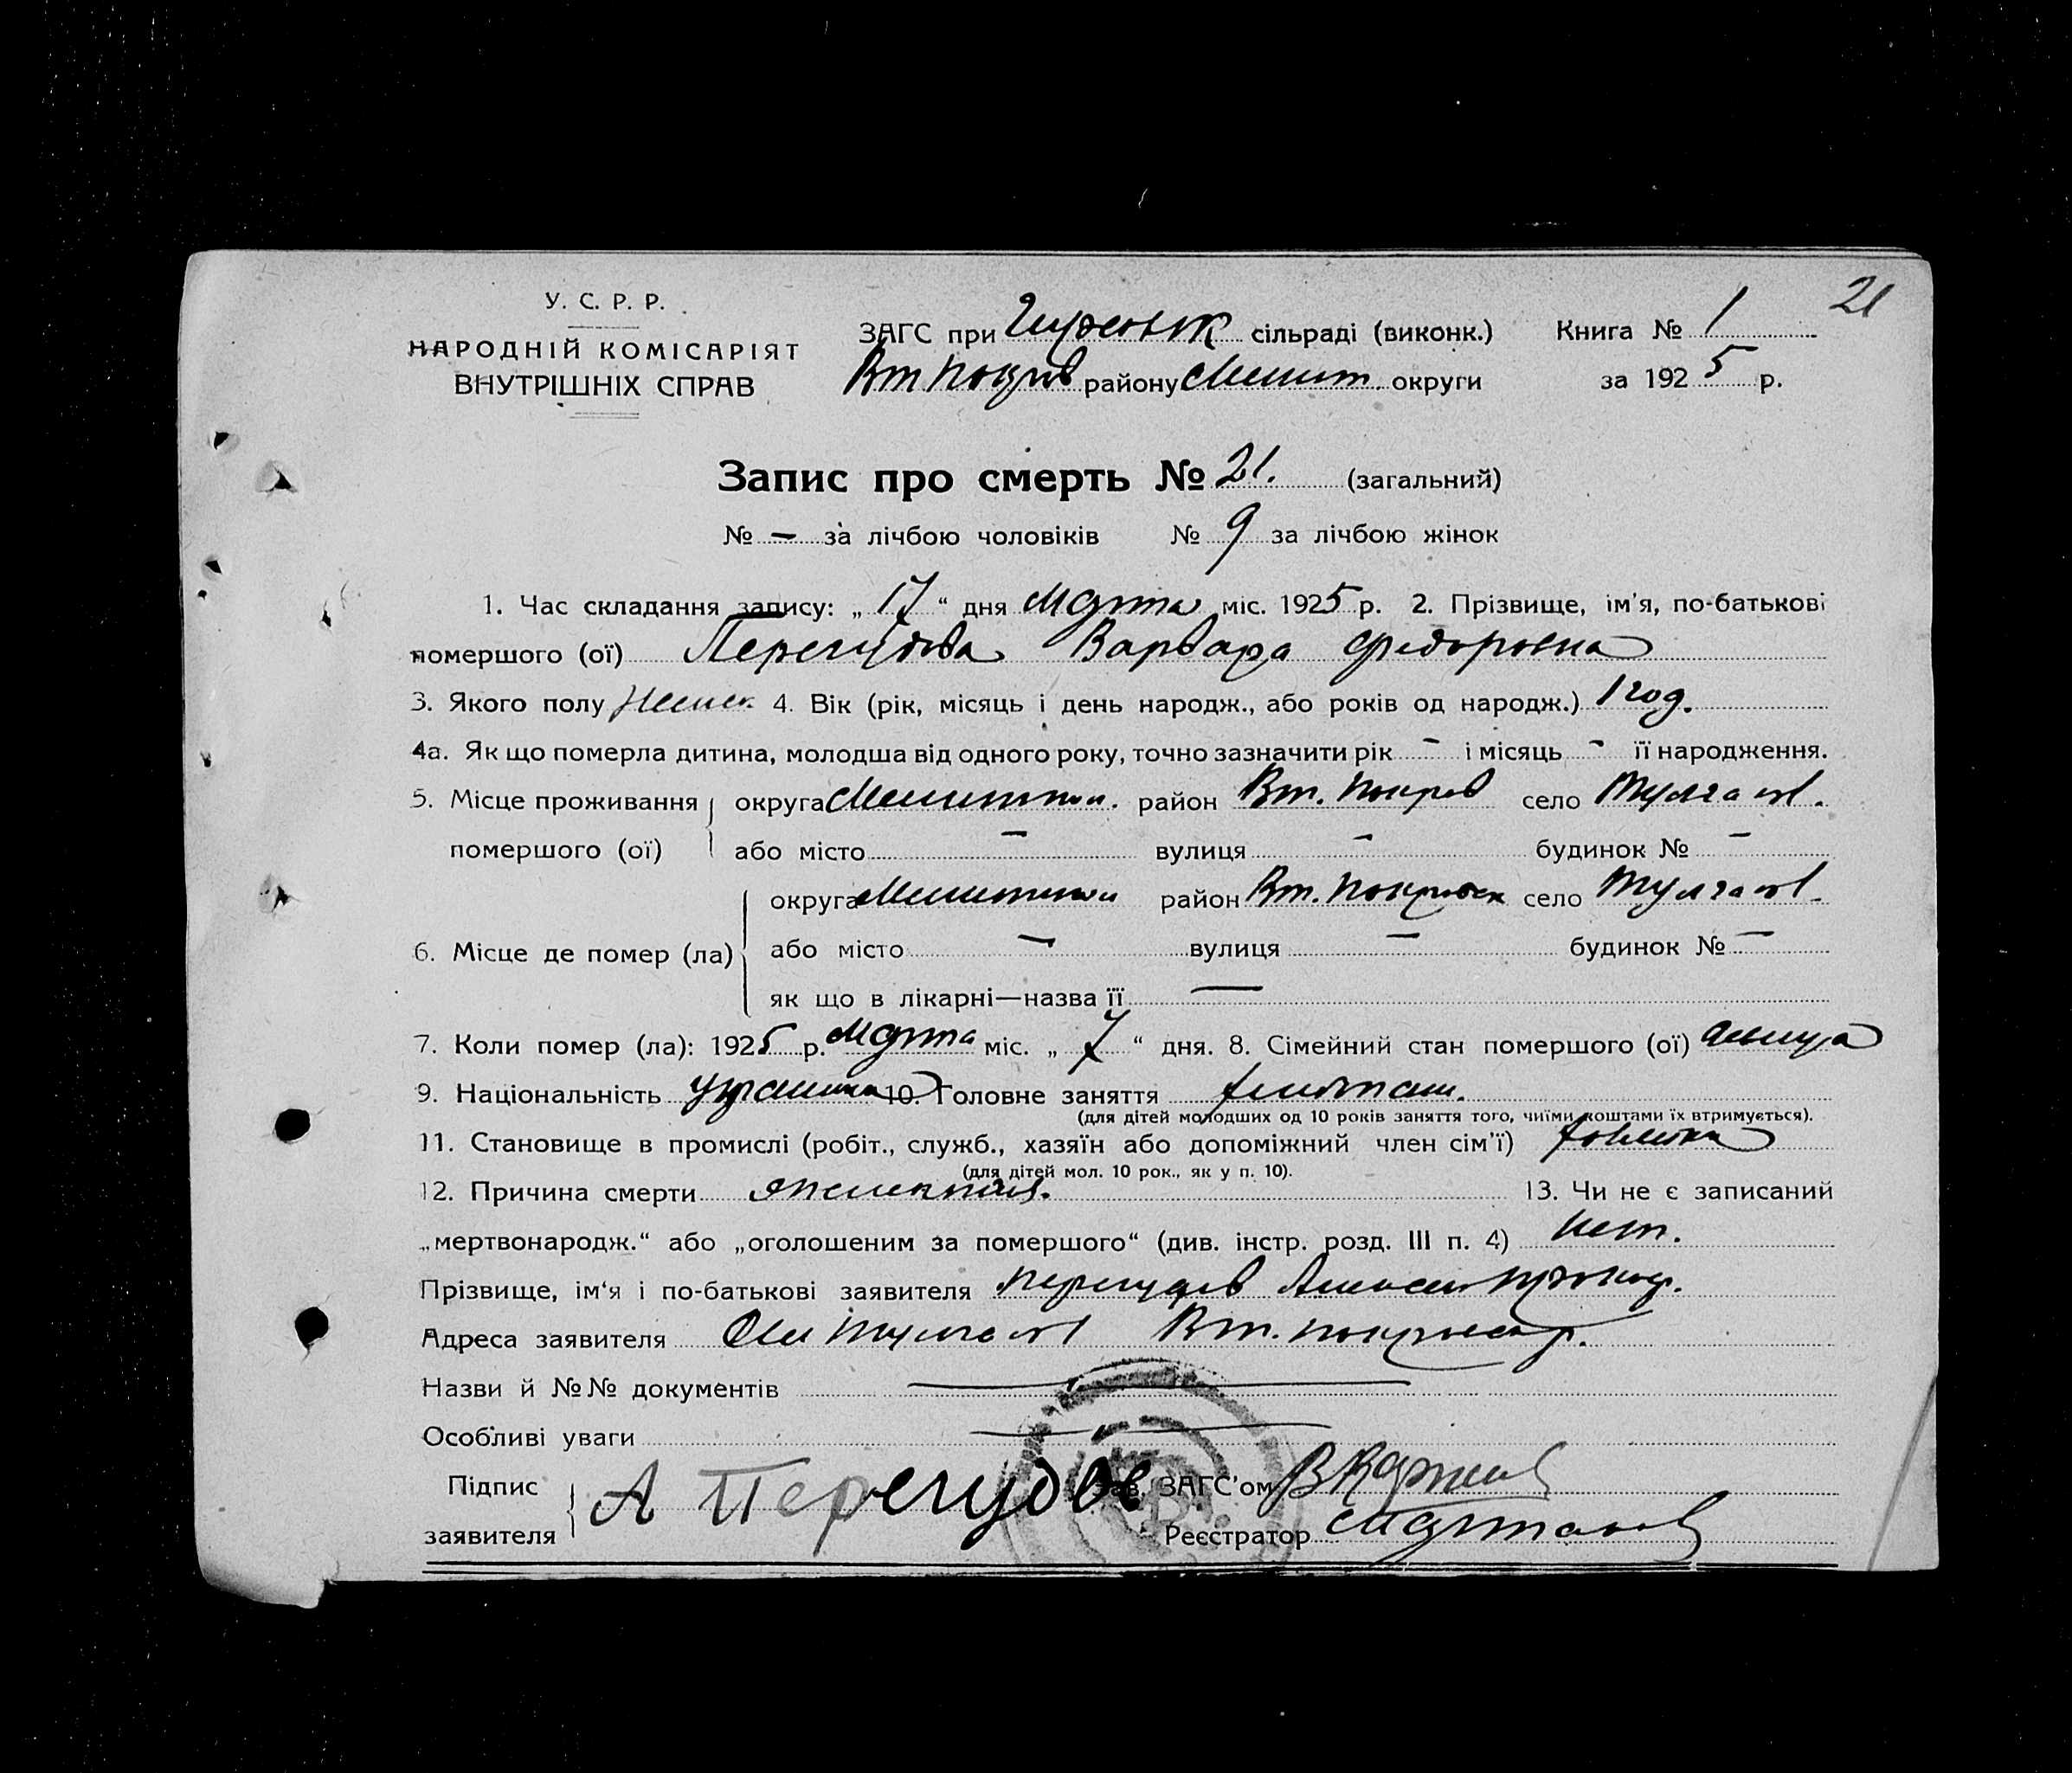 21
У. С. Р. Р.
НАРОДНІЙ КОМІСАРІЯТ
ВНУТРІШНІХ СПРАВ
ЗАГС при сільраді (виконк.) Книга № 1
Вт Покров району Мелит. округи за 1925 р.
Запис про смерть № 21. (загальний)
№ – за лічбою чоловіків № 9 за лічбою жінок
1. Час складання запису: „ 17 “ дня Марта міс. 1925 р. 2. Прізвище, ім'я, по-батькові
помершого (ої) Перегудова Варвара Федоровна
3. Якого полу женск. 4. Вік (рік, місяць і день народж., або років од народж.) 1 год.
4а. Як що померла дитина, молодша від одного року, точно зазначити рік – і місяць – її народження.
5. Місце проживання округа район Вт. Покров село
помершого (ої) або місто – вулиця – будинок № –
округа район Вт. Покровск село
6. Місце де помер (ла) або місто – вулиця – будинок № –
як що в лікарні—назва її —
7. Коли помер (ла): 1925 р. Марта міс. „ 7 “ дня. 8. Сімейний стан помершого (ої) девица
9. Національність украинка 10. Головне заняття хлебпаш.
(для дітей молодших од 10 років заняття того, чиїми коштами їх втримується).
11. Становище в промислі (робіт., служб., хазяїн або допоміжний член сім'ї)
(для дітей мол. 10 рок., як у п. 10).
12. Причина смерти 13. Чи не є записаний
„мертвонародж.“ або „оголошеним за помершого“ (див. інстр. розд. III п. 4) нет.
Прізвище, ім'я і по-батькові заявителя Перегудов
Адреса заявителя Вт.
Назви й №№ документів —
Особливі уваги —
Підпис А Перегудов Зав. ЗАГС'ом
заявителя Реєстратор